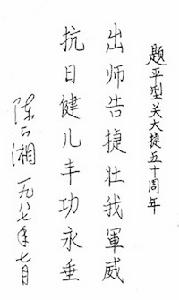 题平型关大捷五十周年
出师告捷壮我軍威
抗日健儿丰功永垂
陈石湘
一九八七年七月